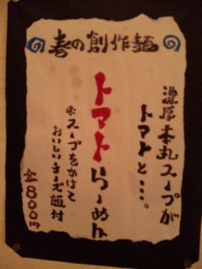 春の創作麺
濃厚本丸スープが
トマトと…。
トマトらーめん
※スープをかけて
おいしいチーズ飯付
全800円